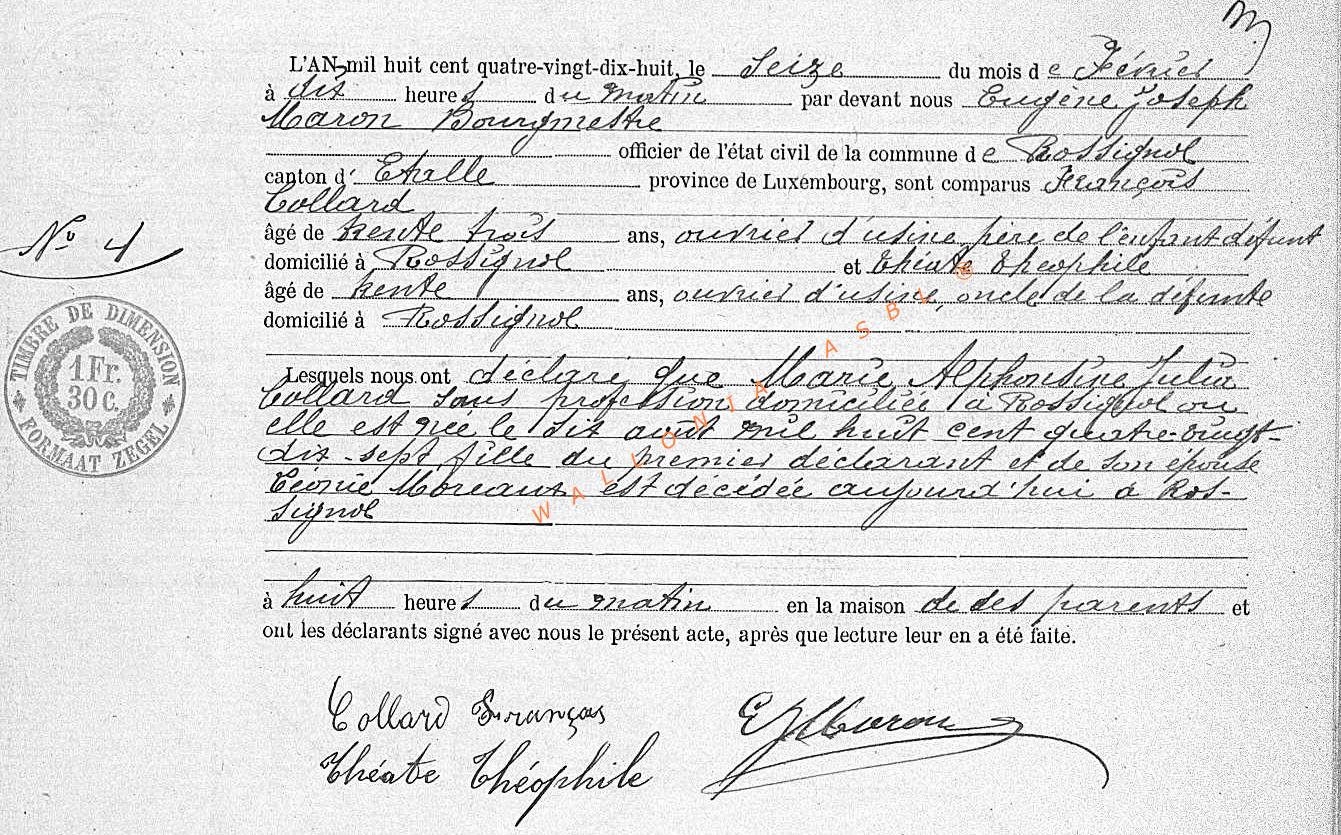 L'AN mil huit cent quatre-vingt-dix-huit, le Seize du mois de Février
à dix heures du matin par devant nous Eugène Joseph
Maron Bourgmestre
officier de l'état civil de la commune de Rossignol
canton d'Etalle province de Luxembourg, sont comparus François
Collard
âgé de trente trois ans, ouvrier d'usine père de l'enfant défunt
domicilié à Rossignol et Théate Théophile
âgé de trente ans, ouvrier d'usine, oncle de la défunte
domicilié à Rossignol
Lesquels nous ont déclaré que Marie Alphonsine Julia
Collard sans profession domiciliée à Rossignol ou
elle est née le six août mil huit cent quatre-vingt-
dix-sept fille du premier déclarant et de son épouse
Léonie Moreaux est décédée aujourd'hui à Ros-
signol
à huit heures du matin en la maison de ses parents et
ont les déclarants signé avec nous le présent acte, après que lecture leur en a été faite.
Collard François
EJMaron
Théate Théophile
No 4
TIMBRE DE DIMENSION
1 Fr.
30 c.
FORMAAT ZEGEL
WALLONIA ASBL ©